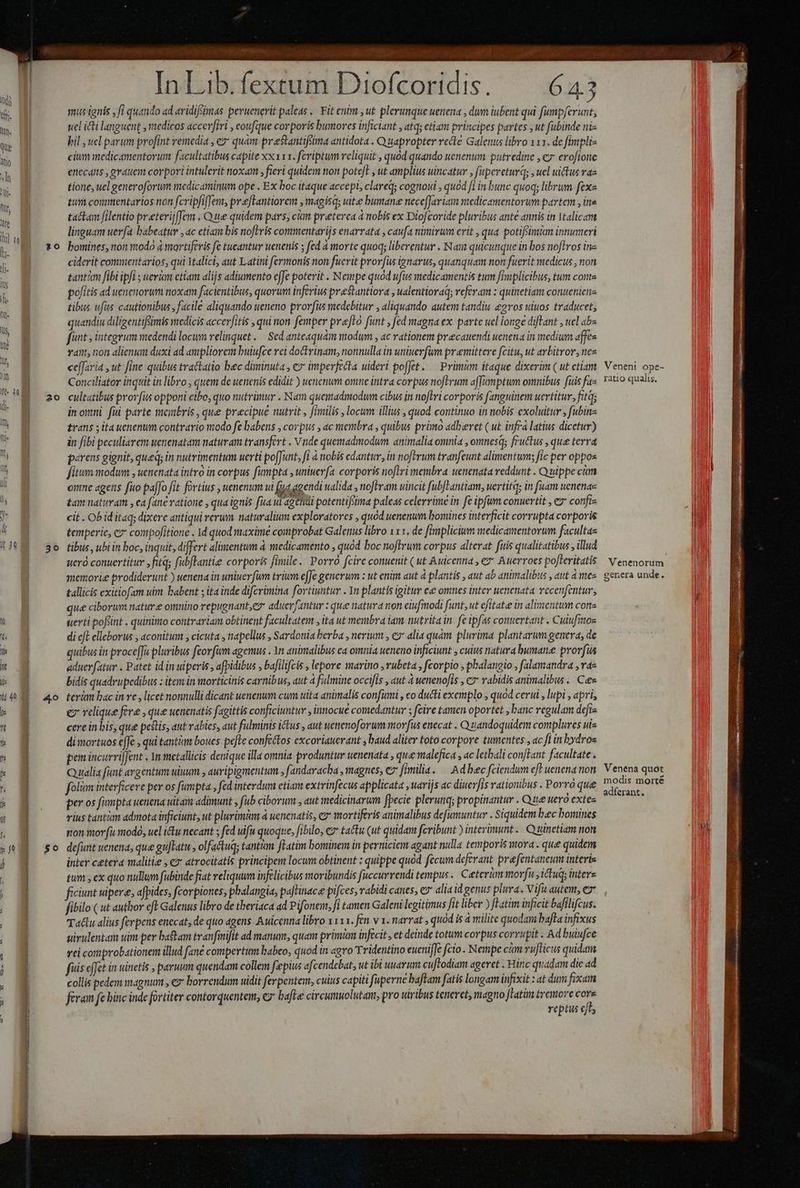 In Lib. sextum Dioscoridis. 643
mus ignis, si quando ad aridissimas peruenerit paleas. Fit enim, ut plerunque uenena, dum iubent qui sumpserunt,
uel icti languent, medicos accersiri, eousque corporis humores inficiant, atq; etiam principes partes, ut subinde ni=
hil, uel parum prosint remedia, et quàm præstantissima antidota. Quapropter rectè Galenus libro III. de simpli=
cium medicamentorum facultatibus capite XXIII. scriptum reliquit, quòd quando uenenum putredine, et erosione
enecans, grauem corpori intulerit noxam, fieri quidem non potest, ut amplius uincatur, supereturq;, uel uictus ra=
tione, uel generosorum medicaminum ope. Ex hoc itaque accepi, clareq; cognoui, quòd si in hunc quoq; librum sex=
tum commentarios non scripsissem, præstantiorem, magisq; uitæ humanæ necessariam medicamentorum partem, in=
tactam silentio præterijssem. Quæ quidem pars, cùm præterea à nobis ex Dioscoride pluribus ante annis in Italicam
linguam uersa habeatur, ac etiam his nostris commentarijs enarrata, causa nimirum erit, qua potissimùm innumeri
10 homines, non modò à mortiferis se tueantur uenenis, sed à morte quoq; liberentur. Nam quicunque in hos nostros in=
ciderit commentarios, qui Itali­ci, aut Latini sermonis non fuerit prorsus ignarus, quanquam non fuerit medicus, non
tantùm sibi ipsi, uerùm etiam alijs adiumento esse poterit. Nempe quòd usus medicamentis tum simplicibus, tum com=
positis ad uenenorum noxam facientibus, quorum inferius præstantiora, ualentioraq; referam: quinetiam conuenien=
tibus usus cautionibus, facilè aliquando ueneno prorsus medebitur, aliquando autem tandiu ægros uiuos traducet,
quandiu diligentissimis medicis accersitis, qui non semper præstò sunt, sed magna ex parte uel longè distant, uel ab=
sunt, integrum medendi locum relinquet. Sed antequàm modum, ac rationem præcauendi uenena in medium affe=
ram, non alienum duxi ad ampliorem huiusce rei doctrinam, nonnulla in uniuersum præmittere scitu, ut arbitror, ne=
cessaria, ut sine quibus tractatio hæc diminuta, et imperfecta uideri posset. Primùm itaque dixerim (ut etiam Veneni ope-
Conciliator inquit in libro, quem de uenenis edidit) uenenum omne intra corpus nostrum assumptum omnibus suis fa= ratio qualis.
20 cultatibus prorsus opponi cibo, quo nutrimur. Nam quemadmodum cibus in nostri corporis sanguinem uertitur, sitq;
in omni sui parte membris, quæ præcipuè nutrit, similis, locum illius, quod continuò in nobis exoluitur, subin=
trans; ita uenenum contrario modo se habens, corpus, ac membra, quibus primò adhæret (ut infrà latius dicetur)
in sibi peculiarem uenenatam naturam transfert. Vnde quemadmodum animalia omnia, omnesq; fructus, quæ terra
parens gignit, quæq; in nutrimentum uerti possunt, si à nobis edantur, in nostrum transeunt alimentum; sic per oppo=
situm modum, uenenata intrò in corpus sumpta, uniuersa corporis nostri membra uenenata reddunt. Quippe cùm
omne agens suo passo sit fortius, uenenum ui sua agendi ualida, nostram uincit substantiam, uertitq; in suam uenena=
tam naturam, ea sanè ratione, qua ignis sua ui agendi potentissima paleas celerrimè in se ipsum conuertit, et confi=
cit. Ob id itaq; dixere antiqui rerum naturalium exploratores, quòd uenenum homines interficit corrupta corporis
temperie, et compositione. Id quod maximè comprobat Galenus libro III. de simplicium medicamentorum faculta=
30 tibus, ubi in hoc, inquit, differt alimentum à medicamento, quòd hoc nostrum corpus alterat suis qualitatibus, illud
uerò conuertitur, sitq; substantiæ corporis simile. Porrò scire conuenit (ut Auicenna, et Auerroes posteritatis Venenorum
memoriæ prodiderunt) uenena in uniuersum trium esse generum: ut enim aut à plantis, aut ab animalibus, aut à me= genera unde.
tallicis exitiosam uim habent; ita inde discrimina sortiuntur. In plantis igitur eæ omnes inter uenenata recensentur,
quæ ciborum naturæ omnino repugnant, et aduersantur: quæ natura non eiusmodi sunt, ut esitatæ in alimentum con=
uerti possint. quinimo contrariam obtinent facultatem, ita ut membra iam nutrita in se ipsas conuertant. Cuiusmo=
di est elleborus, aconitum, cicuta, napellus, Sardonia herba, nerium, et alia quàm plurima plantarum genera, de
quibus in processu pluribus seorsum agemus. In animalibus ea omnia ueneno inficiunt, cuius natura humanæ prorsus
aduersatur. Patet id in uiperis, aspidibus, basiliscis, lepore marino, rubeta, scorpio, phalangio, salamandra, ra=
bidis quadrupedibus: item in morticinis carnibus, aut à fulmine occisis, aut à uenenosis, et rabidis animalibus. Cæ=
40 terùm hac in re, licet nonnulli dicant uenenum cum uita animalis consumi, eo ducti exemplo, quòd cerui, lupi, apri,
et reliquæ feræ, quæ uenenatis sagittis conficiuntur, innocuè comedantur; scire tamen oportet, hanc regulam defi=
cere in his, quæ pestis, aut rabies, aut fulminis ictus, aut uenenosorum morsus enecat. Quandoquidem complures ui=
di mortuos esse, qui tantùm boues peste confectos excoriauerant, haud aliter toto corpore tumentes, ac si in hydro=
pem incurrissent. In metallicis denique illa omnia produntur uenenata, quæ malefica, ac lethali constant facultate.
Qualia sunt argentum uiuum, auripigmentum, sandaracha, magnes, et similia. Ad hæc sciendum est uenena non Venena quot
solùm interficere per os sumpta, sed interdum etiam extrinsecus applicata, uarijs ac diuersis rationibus. Porrò quæ modis mortē
per os sumpta uenena uitam adimunt, sub ciborum, aut medicinarum specie plerunq; propinantur. Quæ uerò exte= adferant.
rius tantùm admota inficiunt, ut plurimùm à uenenatis, et mortiferis animalibus desumuntur. Siquidem hæc homines
non morsu modò, uel ictu necant; sed uisu quoque, sibilo, et tactu (ut quidam scribunt) interimunt. Quinetiam non
50 desunt uenena, quæ gustatu, olfactuq; tantùm statim hominem in perniciem agant nulla temporis mora. quæ quidem
inter cætera malitiæ, et atrocitatis principem locum obtinent: quippe quòd secum deferant præsentaneum interi=
tum, ex quo nullum subinde fiat reliquum infelicibus moribundis succurrendi tempus. Cæterùm morsu, ictuq; inter=
ficiunt uiperæ, aspides, scorpiones, phalangia, pastinacæ pisces, rabidi canes, et alia id genus plura. Visu autem, et
sibilo (ut author est Galenus libro de theriaca ad Pisonem, si tamen Galeni legitimus sit liber) statim inficit basiliscus.
Tactu alius serpens enecat, de quo agens Auicenna libro IIII. fen VI. narrat, quòd is à milite quodam hasta infixus
uirulentam uim per hastam transmisit ad manum, quam primùm infecit, et deinde totum corpus corrupit. Ad huiusce
rei comprobationem illud sanè compertum habeo, quod in agro Tridentino euenisse scio. Nempe cùm rusticus quidam
suis esset in uinetis, paruum quendam collem sæpius ascendebat, ut ibi uuarum custodiam ageret. Hinc quadam die ad
collis pedem magnum, et horrendum uidit serpentem, cuius capiti supernè hastam satis longam infixit: at dum fixam
feram se hinc inde fortiter contorquentem, et hastæ circumuolutam, pro uiribus teneret, magno statim tremore cor=
reptus est,